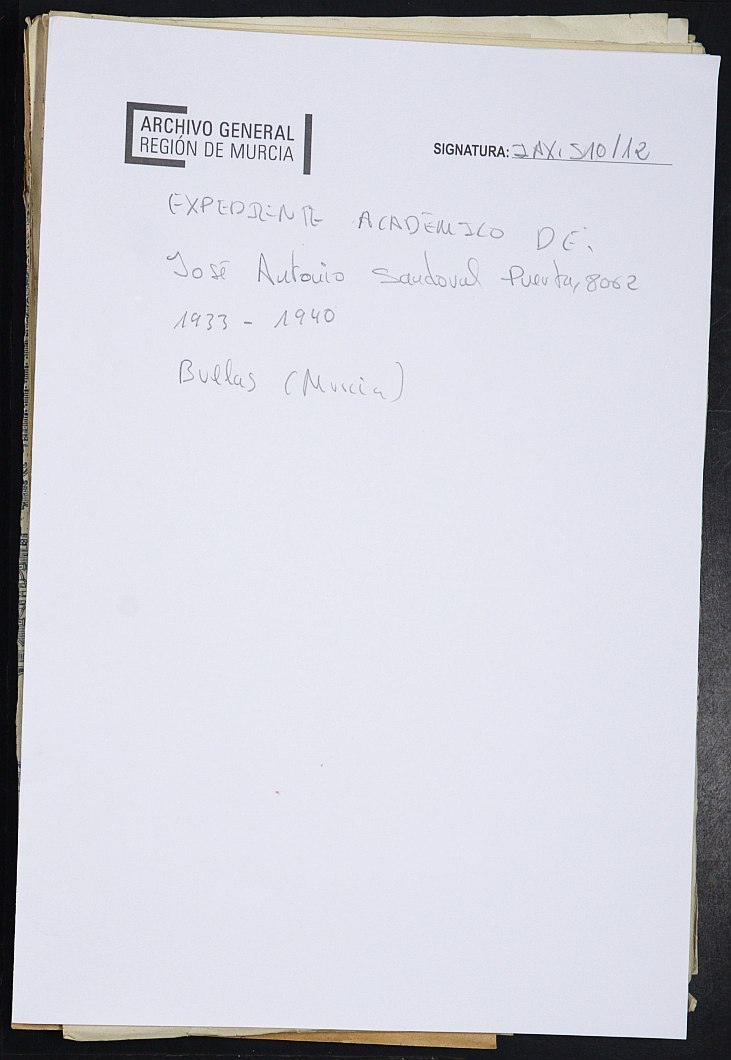 ARCHIVO GENERAL
REGIÓN DE MURCIA
SIGNATURA: IAX, 510/12
EXPEDIENTE ACADÉMICO DE:
José Antonio Sandoval Puerta, 8062
1933 - 1940
Bullas (Murcia)